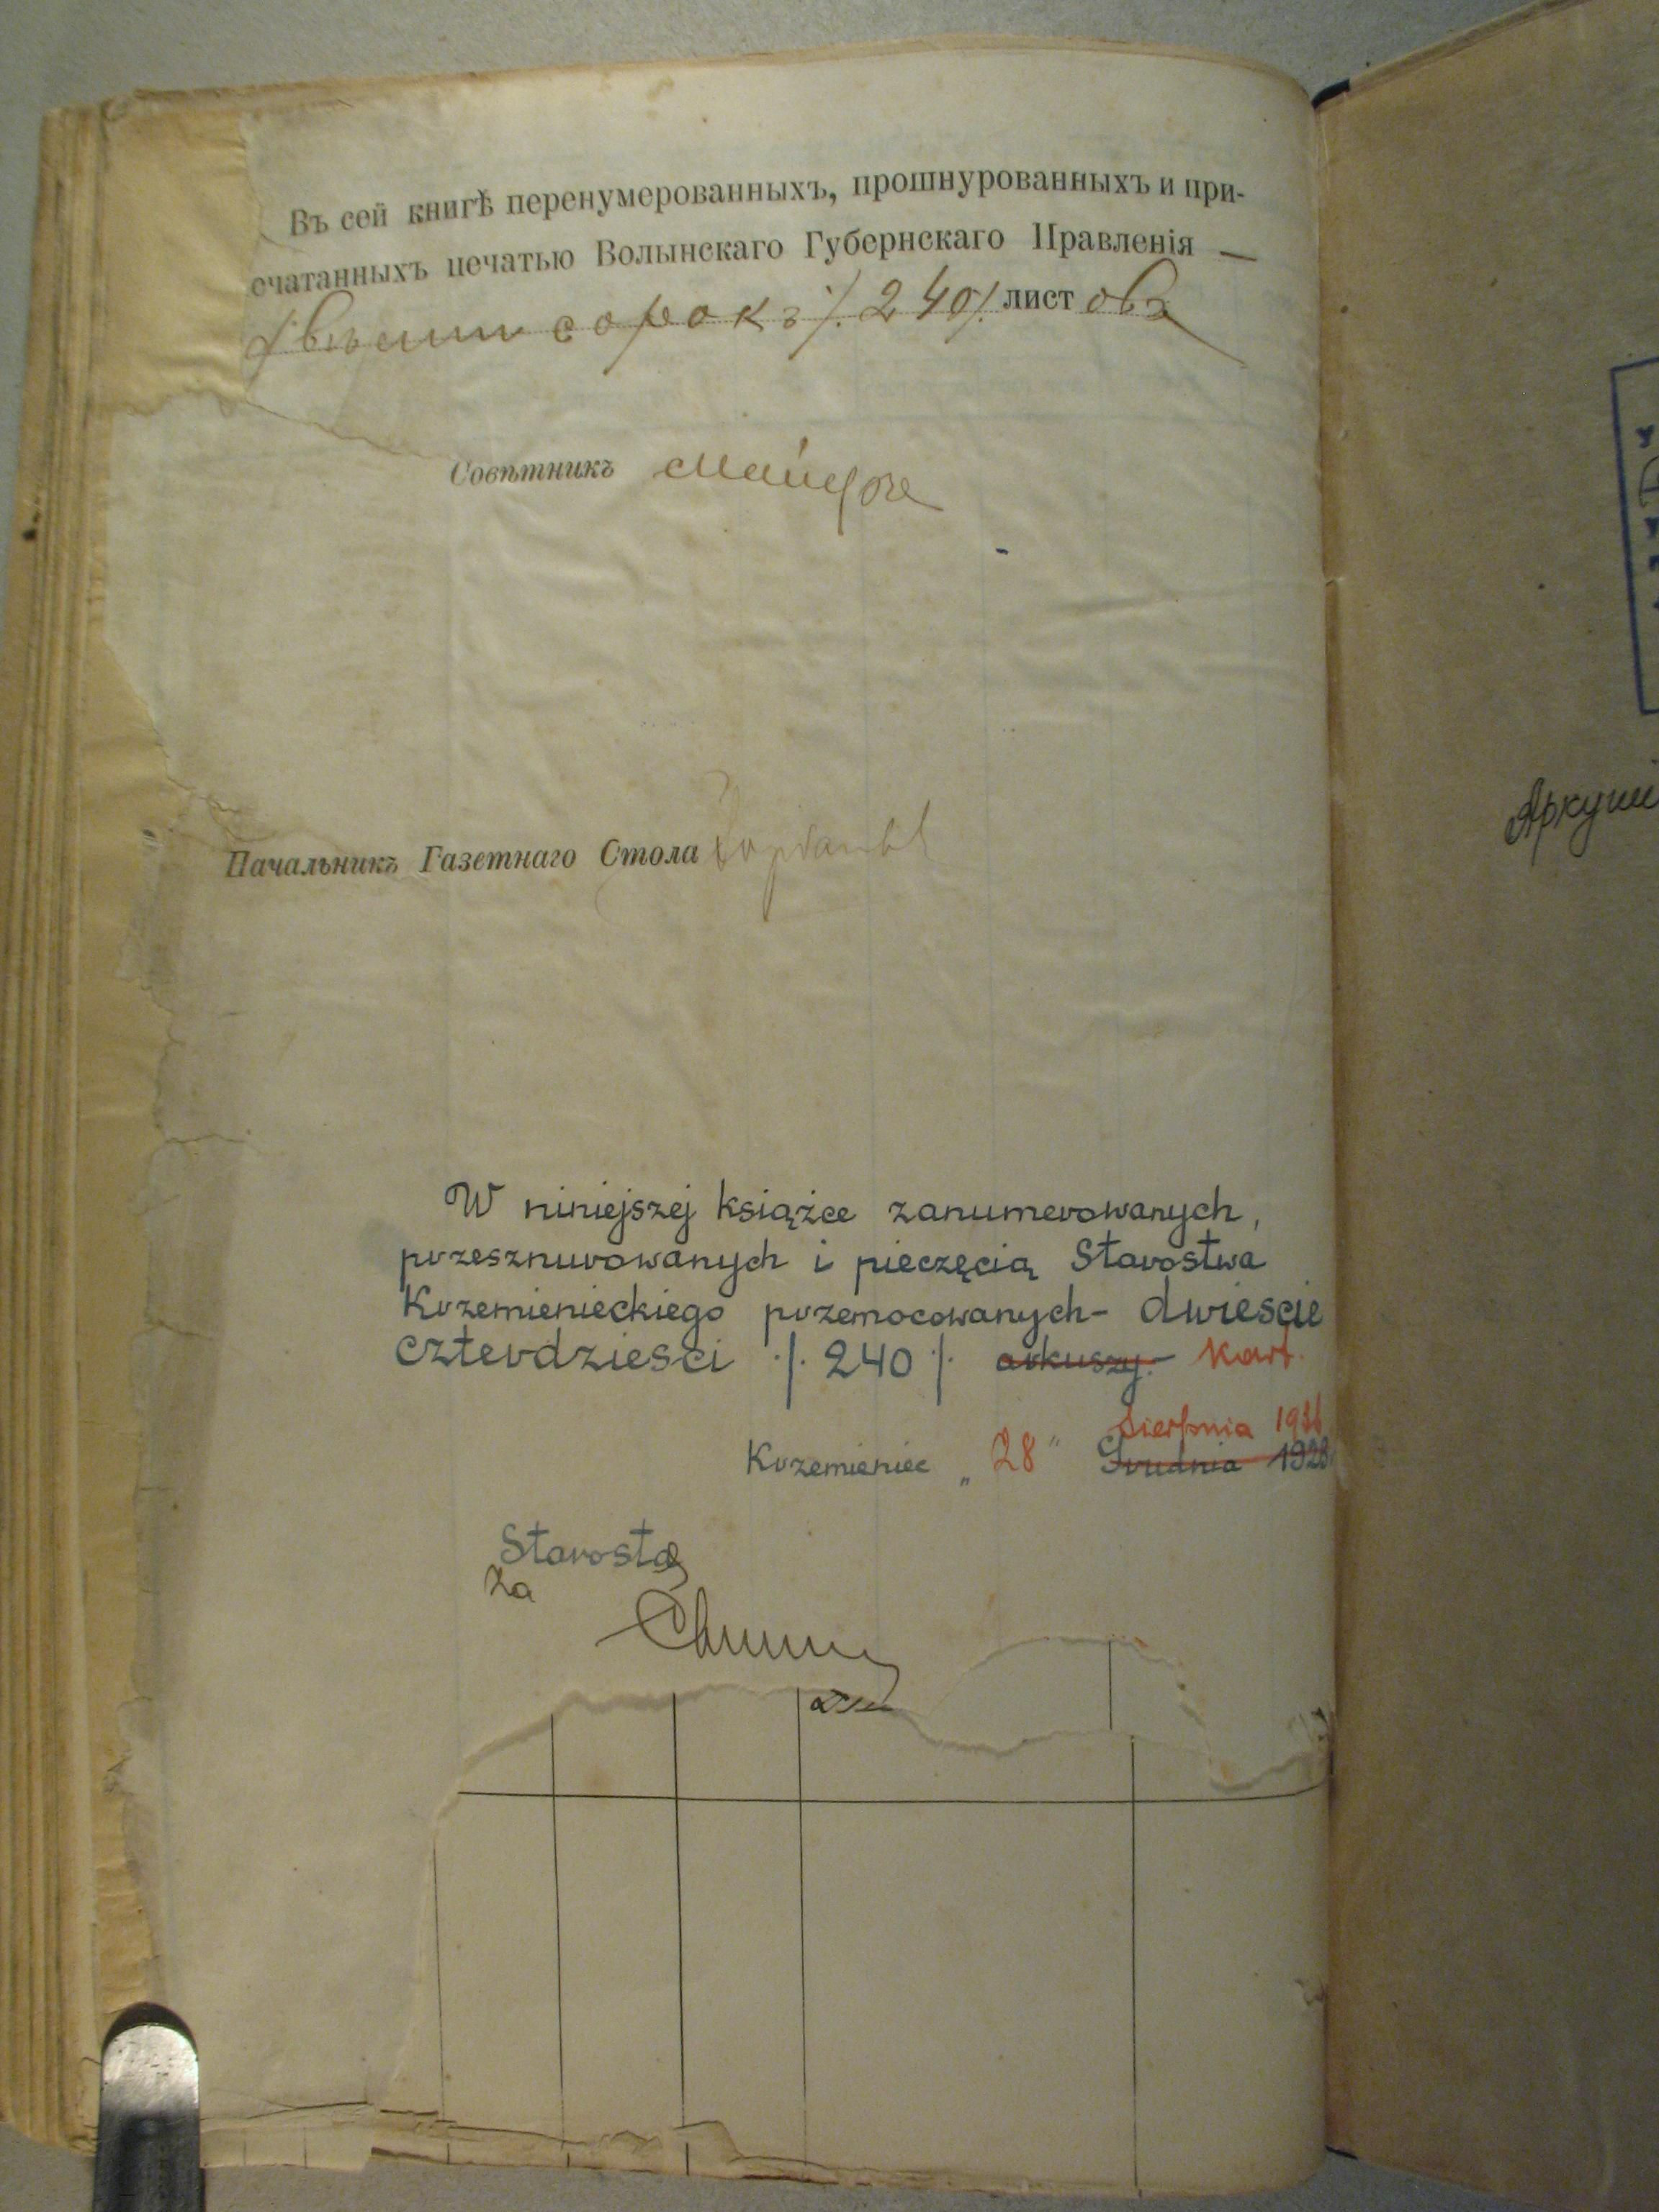 Въ сей книгѣ перенумерованныхъ, прошнурованныхъ и при-
ечатанныхъ печатью Волынскаго Губернскаго Правленія —
двѣсти сорокъ ./. 240 ./. листовъ
Совѣтникъ
Начальникъ Газетнаго Стола
W niniejszej książce zanumerowanych,
przesznurowanych i pieczęcią Starostwa
Krzemienieckiego przemocowanych - dwieście
czterdzieści ./. 240 ./. arkuszy. kart.
Sierpnia
Krzemieniec „28" Grudnia 1928
Starostę
Za
Аркуші